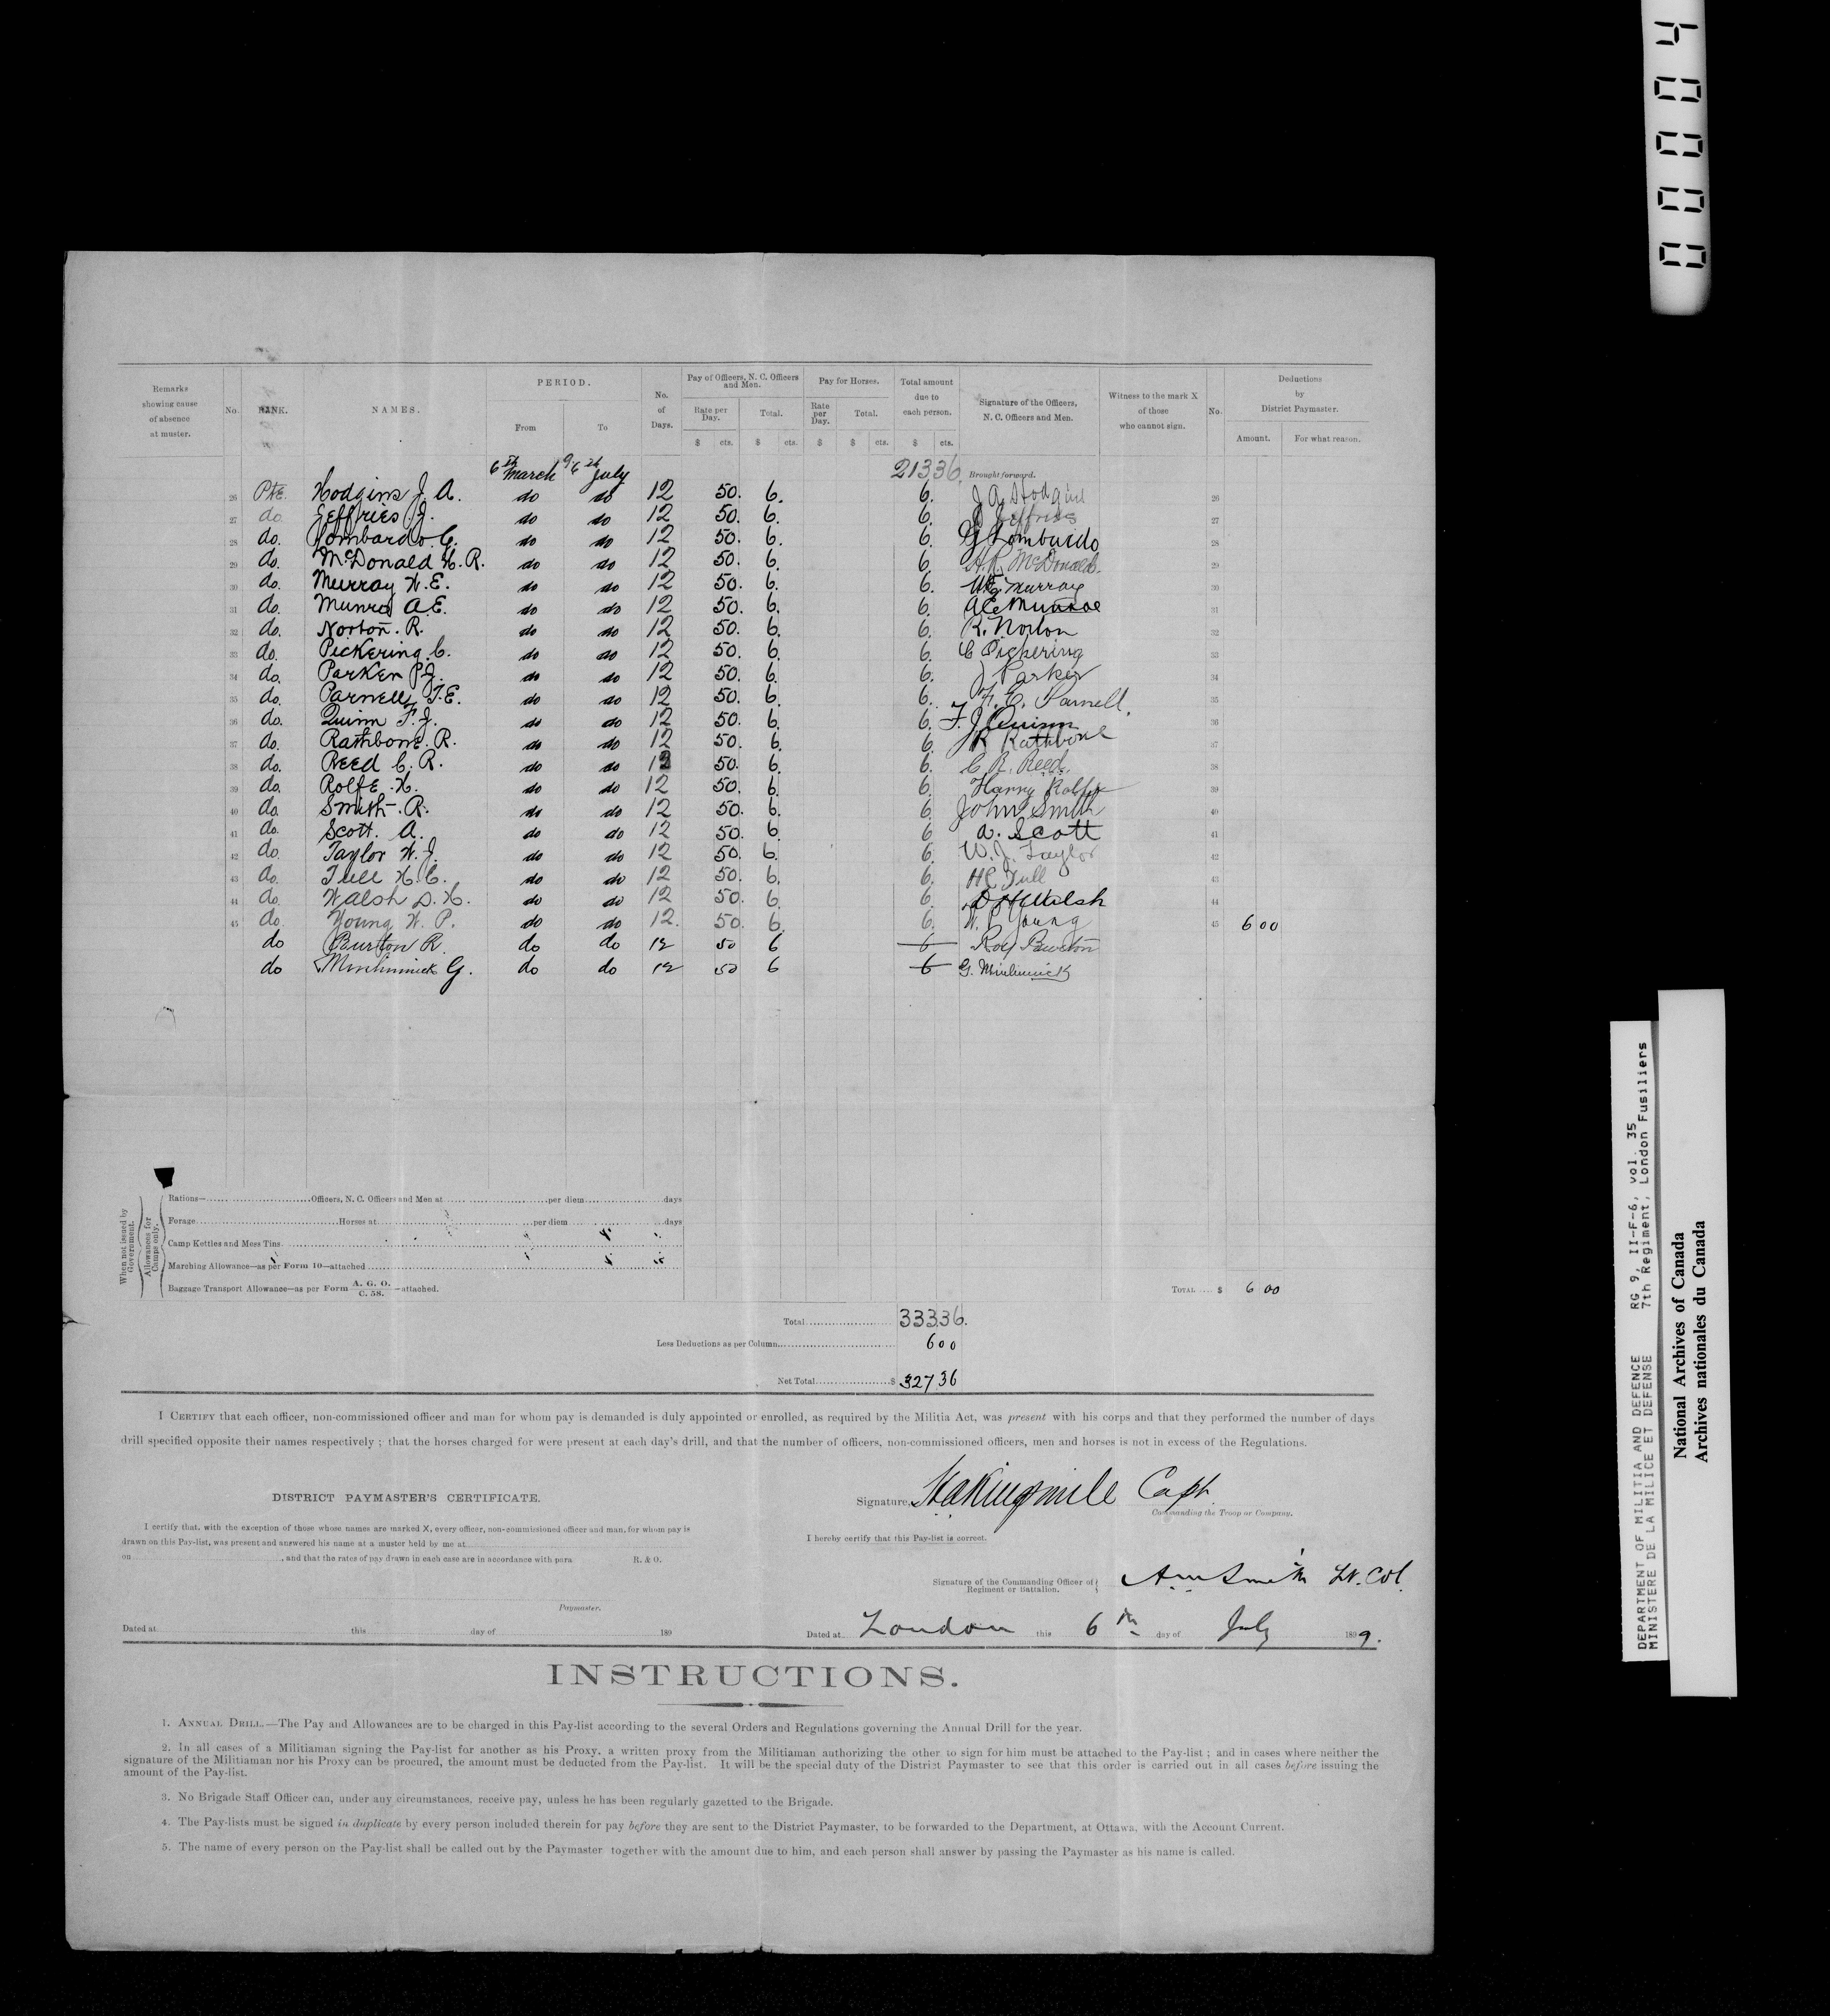 0004
Remarks showing cause of absence at muster. No. RANK. NAMES. PERIOD. From To No. of Days. Pay of Officers, N. C. Officers and Men. Rate per Day. Total. Pay for Horses. Rate per Day. Total. Total amount due to each person. Signature of the Officers, N. C. Officers and Men. Witness to the mark X of those who cannot sign. No. Deductions by District Paymaster. Amount. For what reason.
$ cts. $ cts. $ $ cts. $ cts.
6th March 6th July 213 36. Brought forward.
26 Pte. Hodgins J. A. do do 12 50. 6. 6. J A Hodgins 26
27 do. Jeffries J. do do 12 50. 6. 6. J Jeffries 27
28 do. Lombardo G. do do 12 50. 6. 6. G Lombardo 28
29 do. McDonald H. R. do do 12 50. 6. 6. H. R. McDonald. 29
30 do. Murray W. E. do do 12 50. 6. 6. W E Murray 30
31 do. Munro A. E. do do 12 50. 6. 6. A E Munroe 31
32 do. Norton. R. do do 12 50. 6. 6. R. Norton 32
33 do. Pickering C. do do 12 50. 6. 6. C Pickering 33
34 do. Parker P J. do do 12 50. 6. 6. J Parker 34
35 do. Parnell, T. E. do do 12 50. 6. 6. F. E. Parnell. 35
36 do. Quinn F. J. do do 12 50. 6. 6. F. J Quinn 36
37 do. Rathbone. R. do do 12 50. 6. 6. R Rathbone 37
38 do. Reed C. R. do do 12 50. 6. 6. C R. Reed. 38
39 do. Rolfe. H. do do 12 50. 6. 6. Harry Rolfe 39
40 do. Smith. R. do do 12 50. 6. 6. John Smith 40
41 do. Scott. A. do do 12 50. 6. 6. A. Scott 41
42 do. Taylor W. J. do do 12 50. 6. 6. W. J. Taylor 42
43 do. Tull H. C. do do 12 50. 6. 6. H C Tull 43
44 do. Walsh D. H. do do 12 50. 6. 6. D H Walsh 44
45 do. Young W. P. do do 12. 50. 6. 6. W. P. Young 45 6 00
do Burton R. do do 12 50 6 6 Roy Burton
do Minhinnick G. do do 12 50 6 6 G. Minhinnick
When not issued by Government.
Allowances for Camps only.
Rations— Officers, N. C. Officers and Men at per diem days
Forage Horses at per diem days
Camp Kettles and Mess Tins
Marching Allowance—as per Form 10—attached
Baggage Transport Allowance—as per Form A. G. O. C. 58. —attached.
TOTAL $ 6 00
Total 333 36.
Less Deductions as per Column 6 00
Net Total $ 327 36
I CERTIFY that each officer, non-commissioned officer and man for whom pay is demanded is duly appointed or enrolled, as required by the Militia Act, was present with his corps and that they performed the number of days
drill specified opposite their names respectively ; that the horses charged for were present at each day's drill, and that the number of officers, non-commissioned officers, men and horses is not in excess of the Regulations.
DISTRICT PAYMASTER'S CERTIFICATE.
I certify that, with the exception of those whose names are marked X, every officer, non-commissioned officer and man, for whom pay is
drawn on this Pay-list, was present and answered his name at a muster held by me at
on , and that the rates of pay drawn in each case are in accordance with para R. & O.
Paymaster.
Dated at this day of 189
Signature, Capt.
Commanding the Troop or Company.
I hereby certify that this Pay-list is correct.
Signature of the Commanding Officer of Regiment or Battalion. A M Smith Lt. Col.
Dated at London this 6th day of July 1899.
INSTRUCTIONS.
1. ANNUAL DRILL.—The Pay and Allowances are to be charged in this Pay-list according to the several Orders and Regulations governing the Annual Drill for the year.
2. In all cases of a Militiaman signing the Pay-list for another as his Proxy, a written proxy from the Militiaman authorizing the other to sign for him must be attached to the Pay-list ; and in cases where neither the
signature of the Militiaman nor his Proxy can be procured, the amount must be deducted from the Pay-list. It will be the special duty of the District Paymaster to see that this order is carried out in all cases before issuing the
amount of the Pay-list.
3. No Brigade Staff Officer can, under any circumstances, receive pay, unless he has been regularly gazetted to the Brigade.
4. The Pay-lists must be signed in duplicate by every person included therein for pay before they are sent to the District Paymaster, to be forwarded to the Department, at Ottawa, with the Account Current.
5. The name of every person on the Pay-list shall be called out by the Paymaster together with the amount due to him, and each person shall answer by passing the Paymaster as his name is called.
DEPARTMENT OF MILITIA AND DEFENCE RG 9, II-F-6, vol. 35
MINISTERE DE LA MILICE ET DEFENSE 7th Regiment, London Fusiliers
National Archives of Canada
Archives nationales du Canada